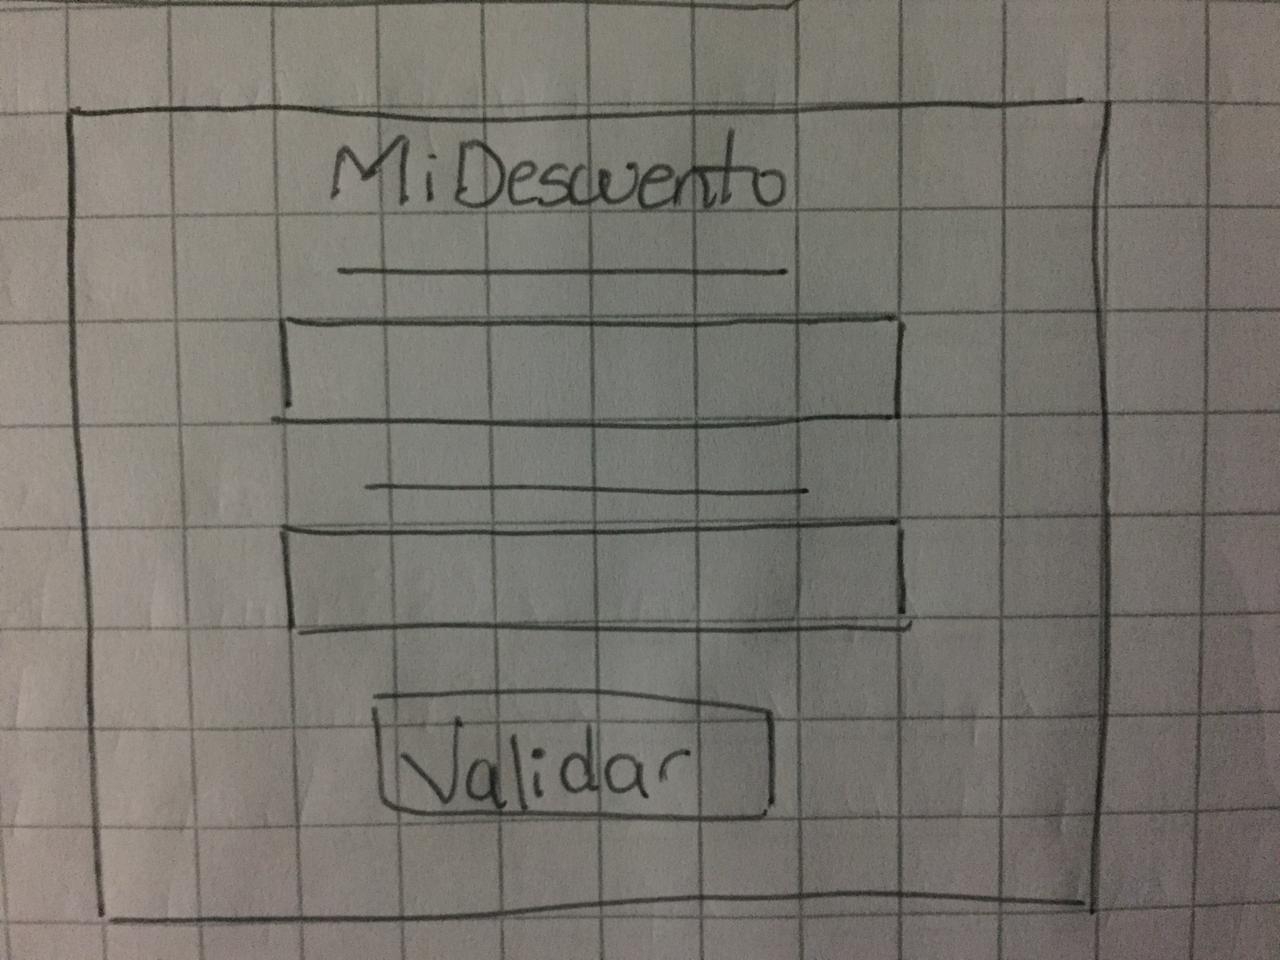 MiDescuento
Validar